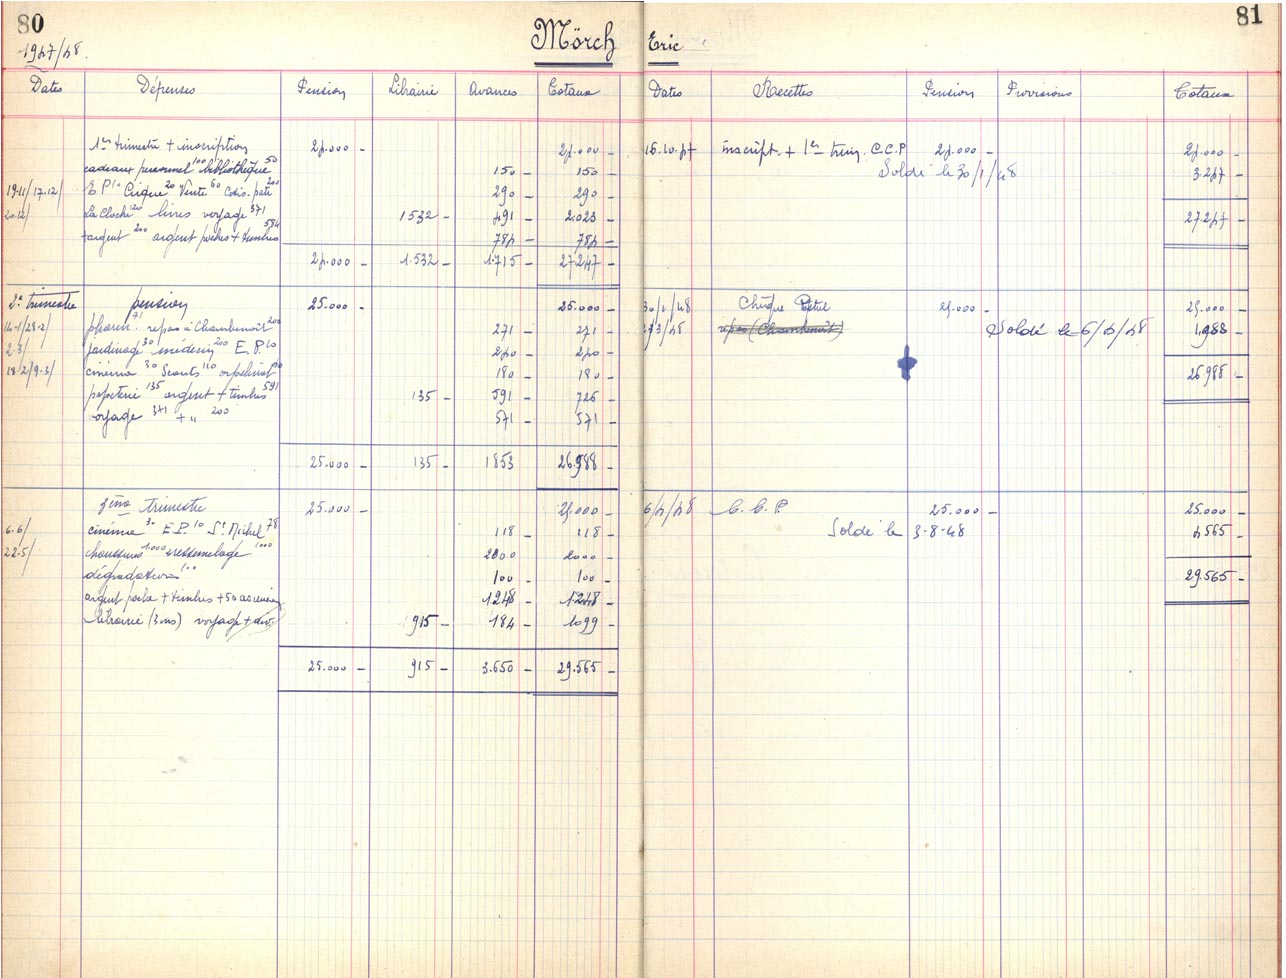 80
1947/48.
Mörch
Dates Dépenses Pension Librairie Avances Totaux
1er trimestre + inscription 24.000 - 24.000 -
cadeaux personnel 100 bibliothèque 50 150 - 150 -
19.11/17.12/ E P 10 Cirque 20 Vente 60 Cotis. pate 200 290 - 290 -
20.12/ La Cloche 120 livres voyage 371 1532 - 491 - 2.023 -
+argent 200 argent poches + timbres 584 784 - 784 -
24.000 - 1.532 - 1.715 - 27.247 -
2e trimestre pension 25.000 - 25.000 -
14-1/28-2/ pharm. 71 repas à Chambenoit 200 271 - 271 -
2-3/ jardinage 30 médecin 200 E.P. 10 240 - 240 -
18.2/9-3/ cinéma 30 Scouts 110 orphelinat 180 - 180 -
papeterie 135 argent + timbres 591 135 - 591 - 726 -
voyage 371 + " 200 571 - 571 -
25.000 - 135 - 1853 26.988 -
3ème trimestre 25.000 - 25.000 -
6-6/ cinéma 30 E.P. 10 St Michel 78 118 - 118 -
22-5/ chaussures 1000 ressemelage 1000 2000 - 2000 -
dégradations 100 100 - 100 -
argent poche + timbres + 50 1248 - 1248 -
librairie (3 ms) voyage + div. 915 - 184 - 1099 -
25.000 - 915 - 3.650 - 29.565 -
81
Eric
Dates Recettes Pension Provisions Totaux
16.10.47 inscript. + 1er trim. C.C.P 24.000 - 24.000 -
Soldé le 30/1/48 3.247 -
27.247 -
30/1/48 Chèque Postal 25.000 - 25.000 -
23/3/48 repas (Chambenoit) Soldé le 6/4/48 1.988 -
26.988 -
6/4/48 C.C.P 25.000 - 25.000 -
Soldé le 3-8-48 4565 -
29.565 -